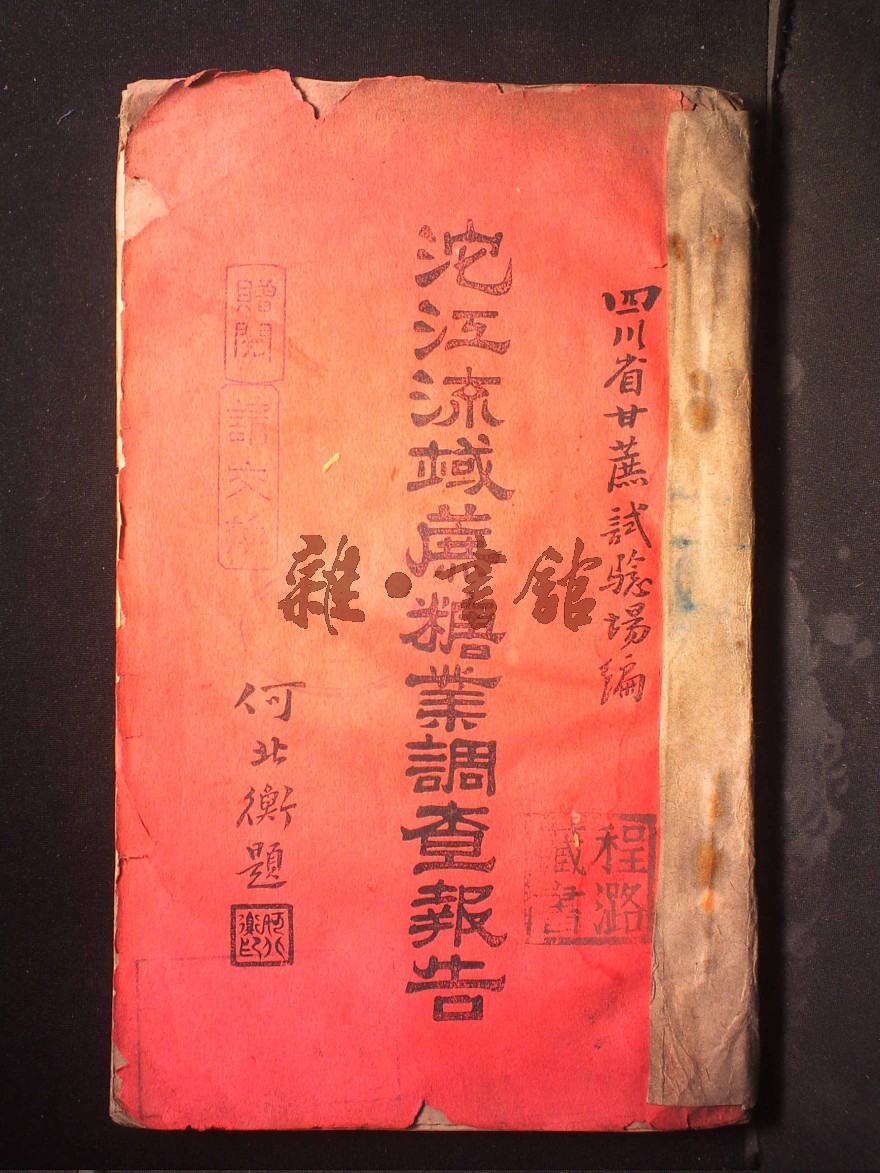 四川省甘蔗試驗場編
沱江流域蔗糖業調查報告
何北衡題
何北
衡印
程潞
藏書
贈閱
請交換
雜·書館